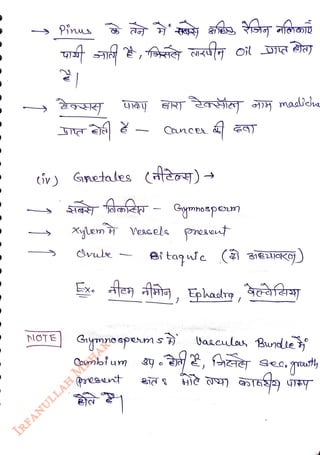 → Pinus के तने में सबसे अधिक रेजिन नलिकाएँ
पायी जाती है, जिससे तारपीन Oil प्राप्त होता
है।
→ टेक्सस पादप द्वारा टैक्सोल नाम
प्राप्त होती है - Cancer की दवा
(iv) Gnetales (नीटेल्स) →
→ सबसे विकसित - Gymnosperm
→ Xylem में Vessels present
→ Ovule - Bitaguic (दो अध्यावरण)
Ex. नीटम नीमोन, Ephadra, वेल्वेटशिया
NOTE Gymnosperms में Vascular Bundle में
Cambium उप० होती है, जिससे Sec. growth
present अतः मोटे तथा काष्ठीय पादप
होते है।
IRFANULLAH